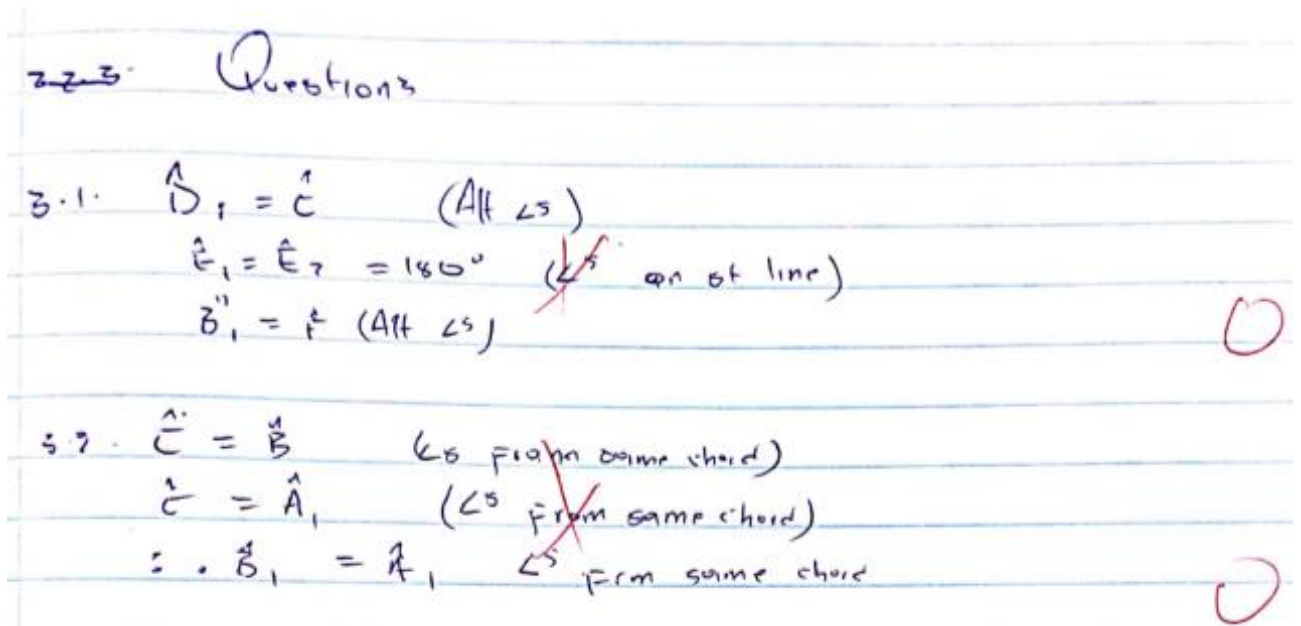 3.2.3. Questions
3.1. D̂₁ = Ĉ (Alt ∠s)
Ê₁ = Ê₂ = 180° (∠s on st line)
B̂₁ = (Alt ∠s)
3.2. Ĉ = B̂ (∠s from same chord)
Ĉ = Â₁ (∠s from same chord)
∴ B̂₁ = Â₁ ∠s from same chord
0
0